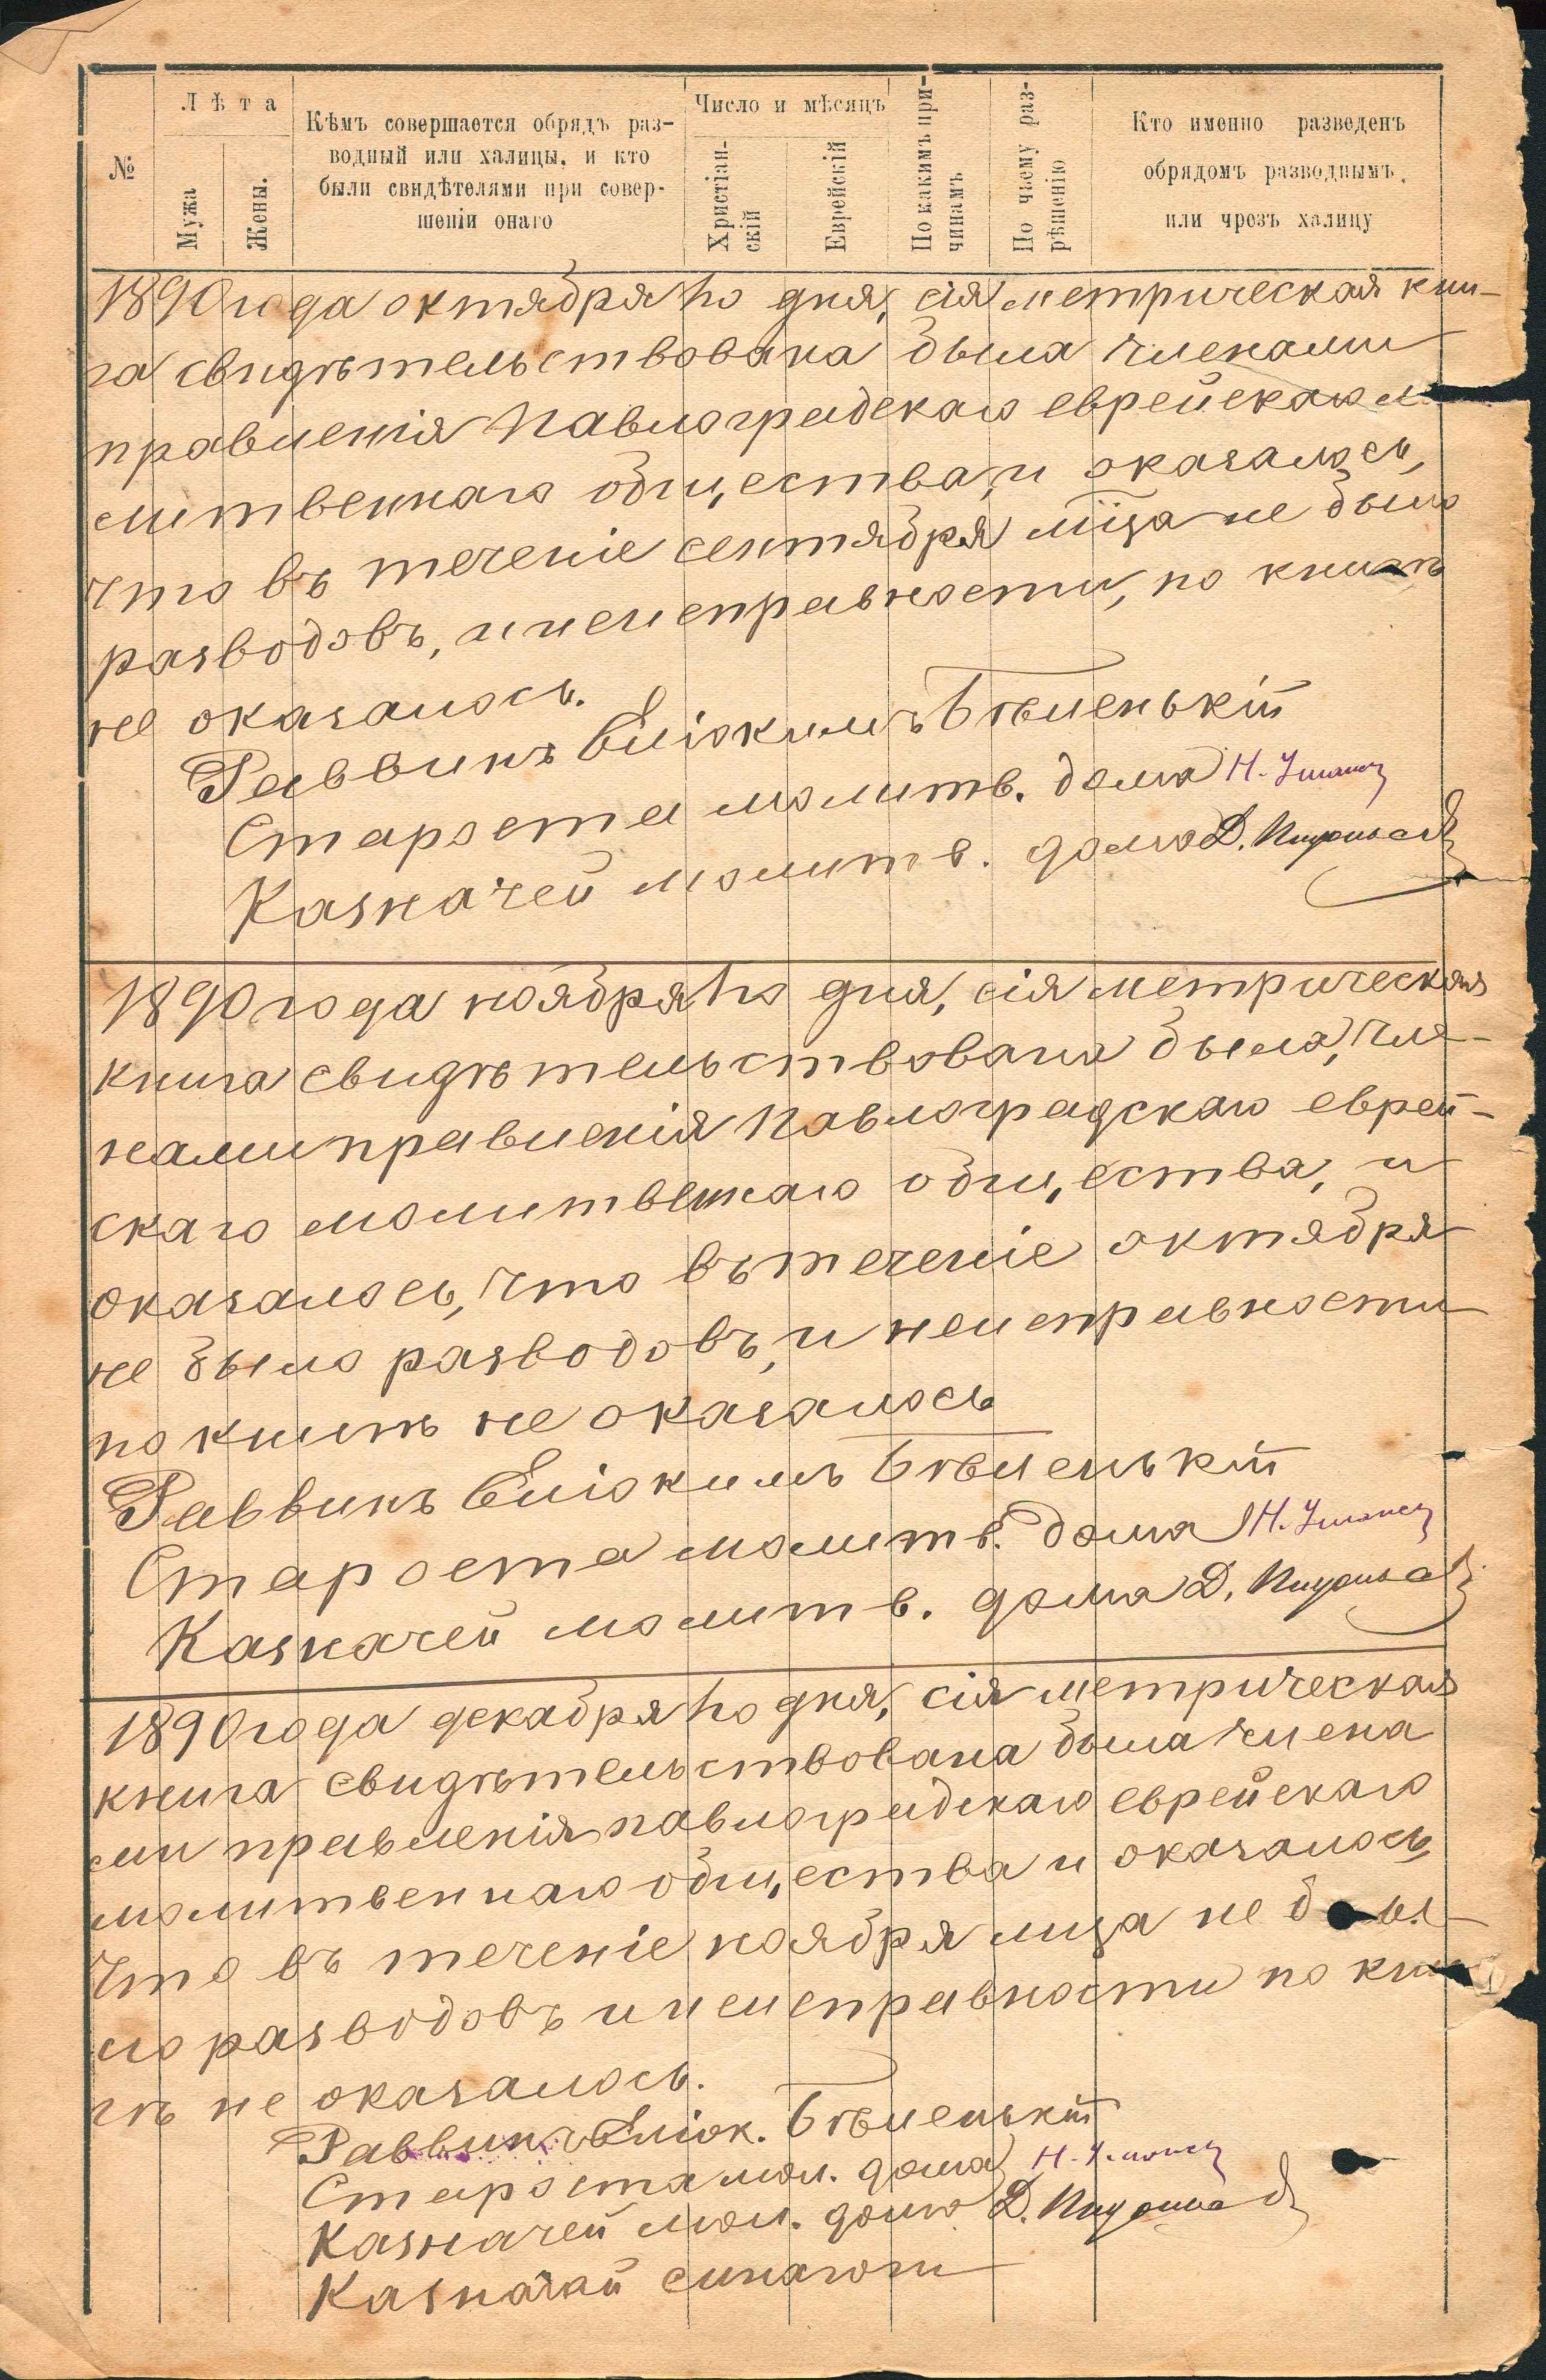 №
Лѣта
Мужа
Жены.
Кѣмъ совершается обрядъ раз-
водный или халицы. и кто
были свидѣтелями при совер-
шеніи онаго
Число и мѣсяцъ
Христіан-
скій
Еврейскій
По какимъ при-
чинамъ
По чьему раз-
рѣшенію
Кто именно разведенъ
обрядомъ разводнымъ.
или чрезъ халицу
1890 года октября 1го дня, сія метрическая кни-
га свидѣтельствована была членами
правленія Павлоградскаго еврейскаго
литвеннаго общества, и оказалось,
что въ теченіе сентября мца не было
разводовъ, и неисправности, по книгѣ
не оказалось.
Раввинъ Еліокимъ Бѣленькій
Староста молитв. дома Н.
Казначей молитв. дома Д.
1890 года ноября 1го дня, сія метрическая
книга свидѣтельствована была, чле-
нами правленія Павлоградскаго еврей-
скаго молитвеннаго общества, и
оказалось, что въ теченіе октября
не было разводовъ, и неисправности
по книгѣ не оказалось
Раввинъ Еліокимъ Бѣленькій
Староста молитв. дома Н.
Казначей молитв. дома Д.
1890 года декабря 1го дня, сія метрическая
книга свидѣтельствована была члена
ми правленія павлоградскаго еврейскаго
молитвеннаго общества и оказалось,
что въ теченіе ноября мца не бы
ло разводовъ и неисправности по кни
гѣ не оказалось.
Раввинъ Еліок. Бѣленькій
Староста мол. дома Н.
Казначей мол. дома Д.
Казначай синагоги